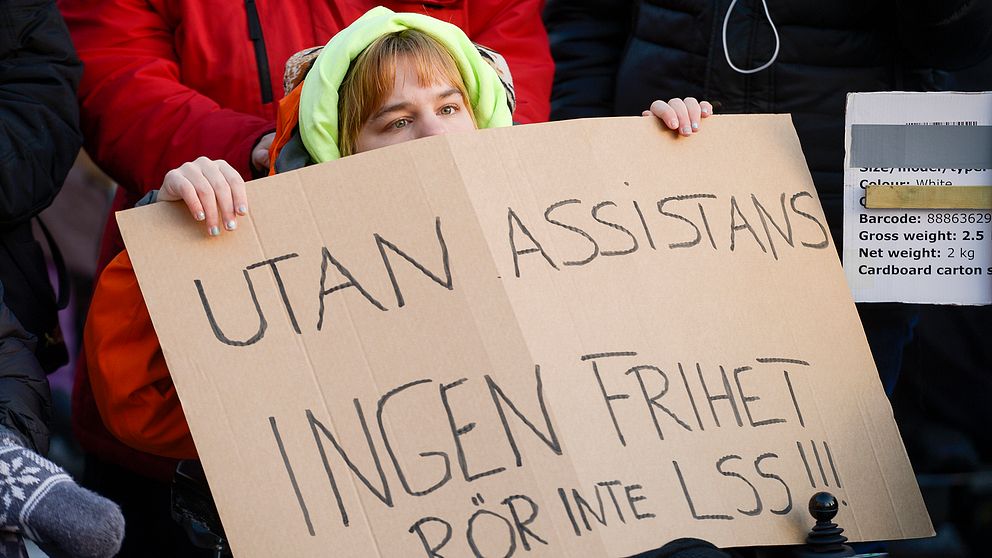 UTAN ASSISTANS
INGEN FRIHET
RÖR INTE LSS!!!
Size/model/type:
Colour: White
Barcode: 88863629
Gross weight: 2.5
Net weight: 2 kg
Cardboard carton s